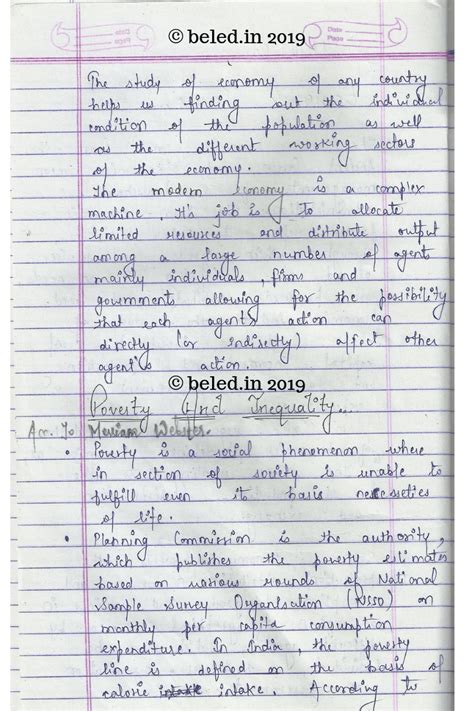 © beled.in 2019
Date
Page
The study of economy of any country
helps us finding out the individual
condition of the population as well
as the different working sectors
of the economy.
The modern economy is a complex
machine. It's job is to allocate
limited resources and distribute output
among a large number of agents
mainly individuals, firms and
governments allowing for the possibility
that each agent's action can
directly (or indirectly) affect other
agent's action.
© beled.in 2019
Poverty And Inequality...
Acc. To Merriam Webster.
• Poverty is a social phenomenon where
in section of society is unable to
fulfill even it basis necessities
of life.
• Planning Commission is the authority,
which publishes the poverty estimates
based on various rounds of National
Sample Survey Organisation (NSSO) on
monthly per capita consumption
expenditure. In India, the poverty
line is defined on the basis of
calorie intake. According to